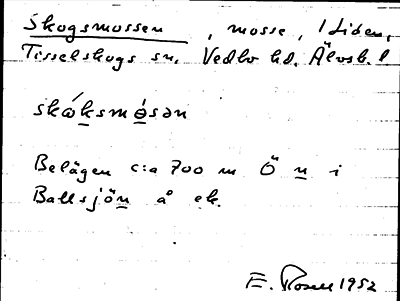 Skogsmossen , mosse, 1 Liden,
Tisselskogs sn, Vedbo hd. Älvsb. l
skóksmósən
Belägen c:a 700 m Ö n i
Ballsjön å ek.
E. Rosell 1952